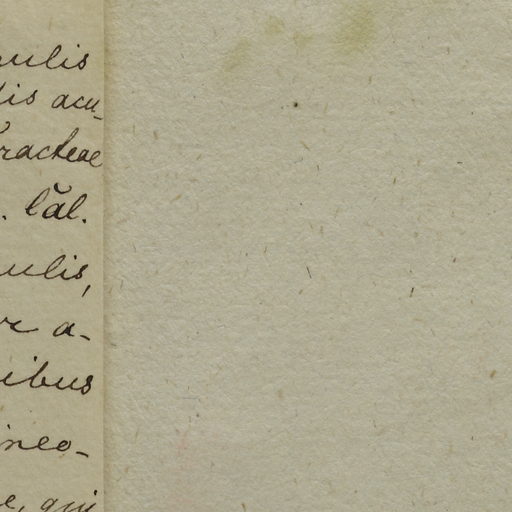 ulis
lis acu-
racteae
. lăl.
ulis,
a-
ibus
ineo-
e, qui